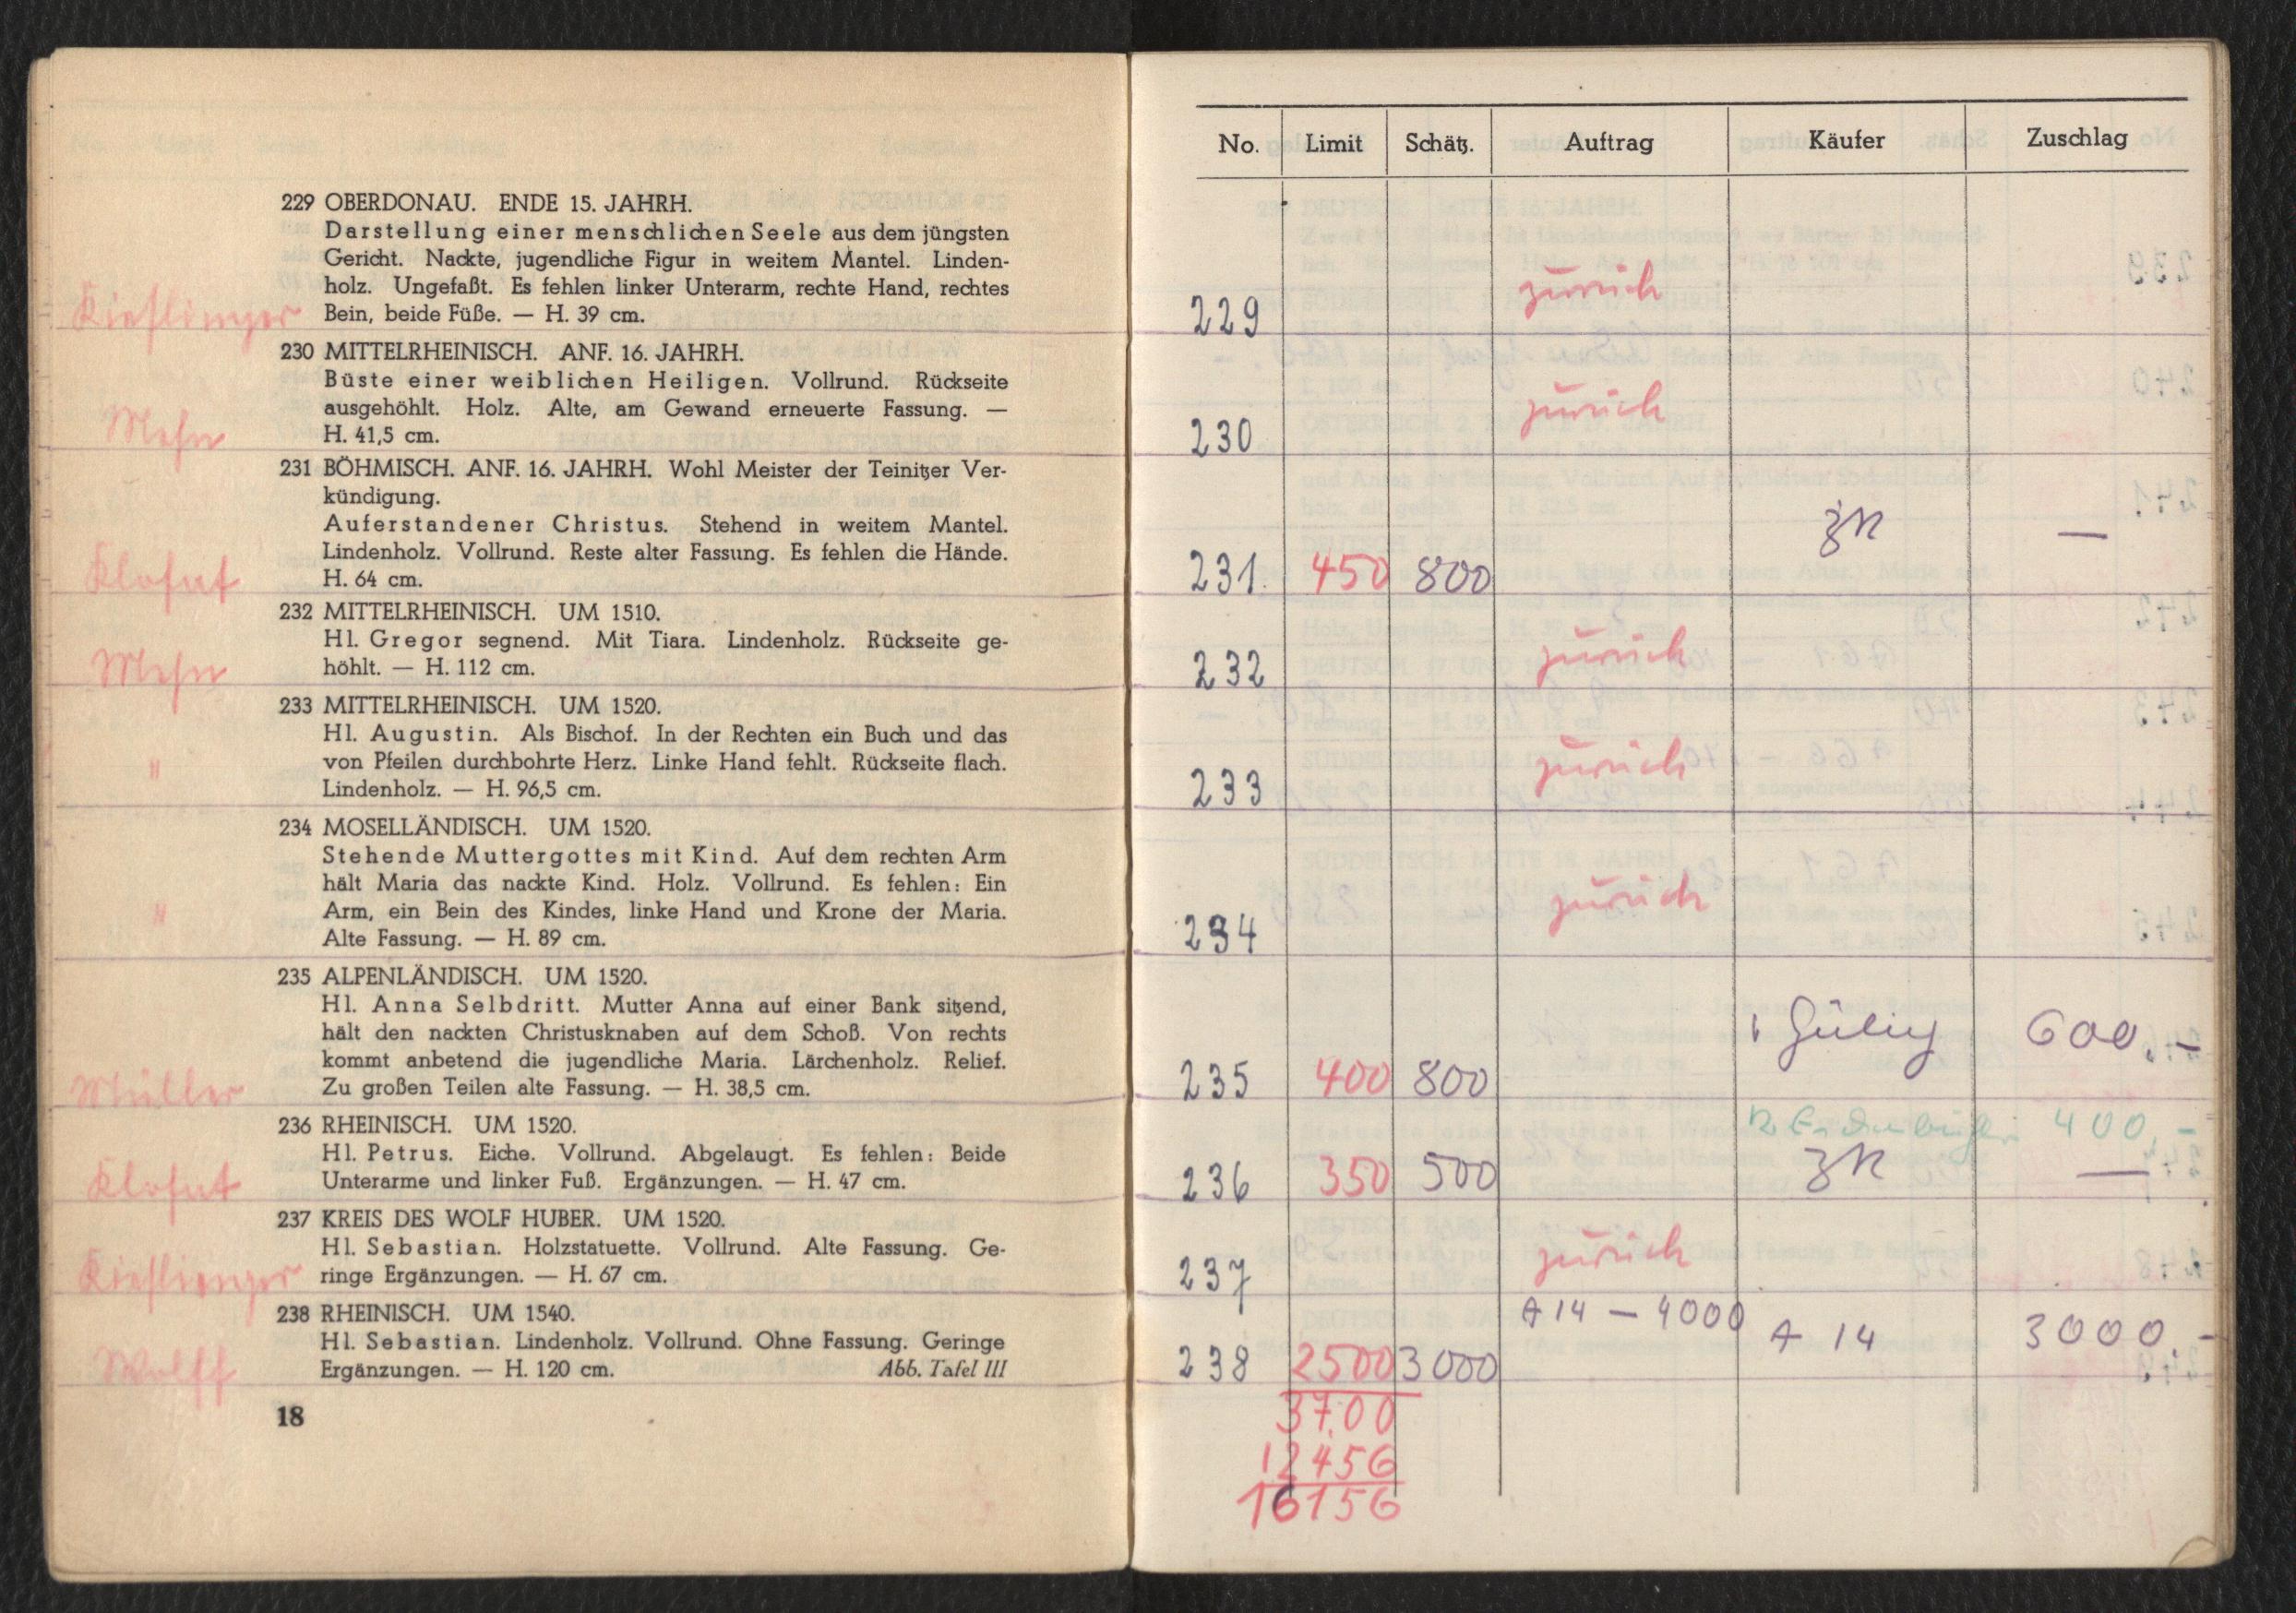 229 OBERDONAU. ENDE 15. JAHRH.
Darstellung einer menschlichen Seele aus dem jüngsten
Gericht. Nackte, jugendliche Figur in weitem Mantel. Linden-
holz. Ungefaßt. Es fehlen linker Unterarm, rechte Hand, rechtes
Kieslinger Bein, beide Füße. — H. 39 cm.
230 MITTELRHEINISCH. ANF. 16. JAHRH.
Büste einer weiblichen Heiligen. Vollrund. Rückseite
ausgehöhlt. Holz. Alte, am Gewand erneuerte Fassung. —
Mehn H. 41,5 cm.
231 BÖHMISCH. ANF. 16. JAHRH. Wohl Meister der Teinitzer Ver-
kündigung.
Auferstandener Christus. Stehend in weitem Mantel.
Lindenholz. Vollrund. Reste alter Fassung. Es fehlen die Hände.
Klofat H. 64 cm.
232 MITTELRHEINISCH. UM 1510.
Hl. Gregor segnend. Mit Tiara. Lindenholz. Rückseite ge-
Mehn höhlt. — H. 112 cm.
233 MITTELRHEINISCH. UM 1520.
Hl. Augustin. Als Bischof. In der Rechten ein Buch und das
" von Pfeilen durchbohrte Herz. Linke Hand fehlt. Rückseite flach.
Lindenholz. — H. 96,5 cm.
234 MOSELLÄNDISCH. UM 1520.
Stehende Muttergottes mit Kind. Auf dem rechten Arm
hält Maria das nackte Kind. Holz. Vollrund. Es fehlen: Ein
" Arm, ein Bein des Kindes, linke Hand und Krone der Maria.
Alte Fassung. — H. 89 cm.
235 ALPENLÄNDISCH. UM 1520.
Hl. Anna Selbdritt. Mutter Anna auf einer Bank sitzend,
hält den nackten Christusknaben auf dem Schoß. Von rechts
kommt anbetend die jugendliche Maria. Lärchenholz. Relief.
Müller Zu großen Teilen alte Fassung. — H. 38,5 cm.
236 RHEINISCH. UM 1520.
Hl. Petrus. Eiche. Vollrund. Abgelaugt. Es fehlen: Beide
Klofat Unterarme und linker Fuß. Ergänzungen. — H. 47 cm.
237 KREIS DES WOLF HUBER. UM 1520.
Hl. Sebastian. Holzstatuette. Vollrund. Alte Fassung. Ge-
Kieslinger ringe Ergänzungen. — H. 67 cm.
238 RHEINISCH. UM 1540.
Hl. Sebastian. Lindenholz. Vollrund. Ohne Fassung. Geringe
Wolff Ergänzungen. — H. 120 cm. Abb. Tafel III
18
No. Limit Schätz. Auftrag Käufer Zuschlag
229 zurück
230 zurück
231. 450 800 zR —
232 zurück
233 zurück
234 zurück
235 400 800 600.-
400.-
236 350 500 zR —
237 zurück
A 14 — 4000
238 2500 3000 A 14 3000.-
3700
12456
16156